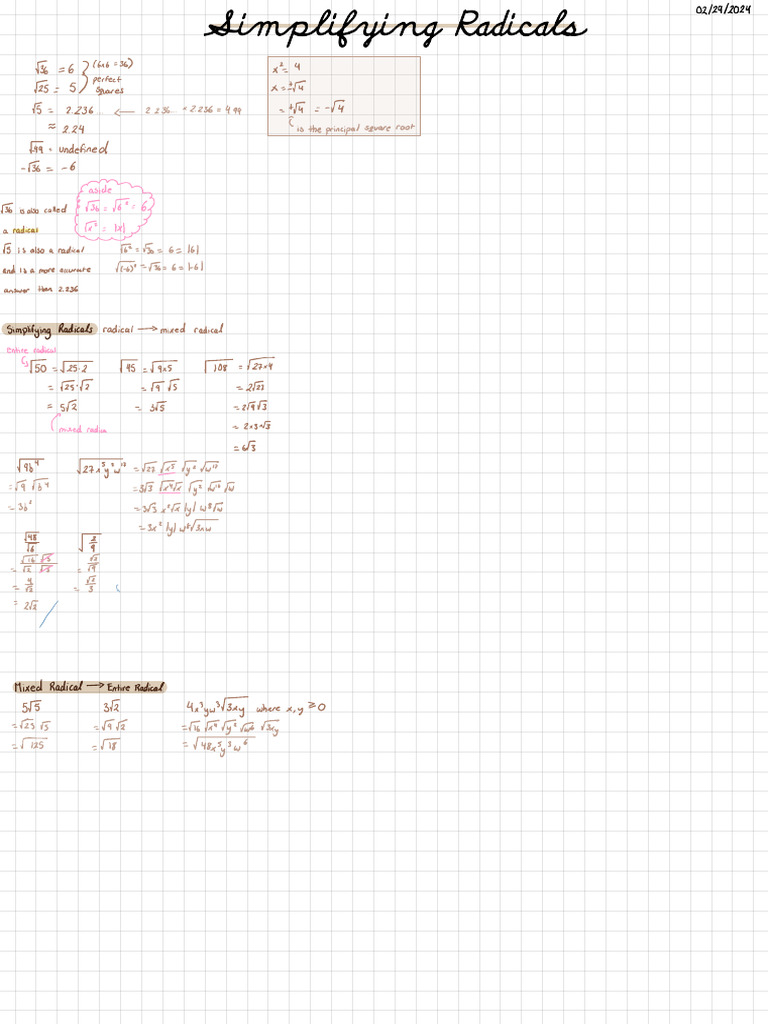 Simplifying Radicals
02/29/2024
√36 = 6 (6x6 = 36)
√25 = 5 perfect squares
√5 = 2.236... ← 2.236... × 2.236 = 4.99
≈ 2.24
√99 = undefined
-√36 = -6
x² = 4
x = ±√4
= +√4 = -√4
is the principal square root
aside
√36 = √6² = 6
√x² = |x|
√36 is also called
a radical
√5 is also a radical
and is a more accurate
answer than 2.236
√6² = √36 = 6 = |6|
√(-6)² = √36 = 6 = |-6|
Simplifying Radicals radical → mixed radical
entire radical
√50 = √25·2
= √25·√2
= 5√2
mixed radical
√45 = √9x5
= √9 √5
= 3√5
√108 = √27x4
= 2√27
= 2√9√3
= 2×3√3
= 6√3
√9b⁴
= √9 √b⁴
= 3b²
√27x⁵y²w¹⁷ = √27 √x⁵ √y² √w¹⁷
= 3√3 √x⁴√x √y² √w¹⁶ √w
= 3√3 x²√x |y| w⁸√w
= 3x² |y| w⁸√3xw
√48/√6
= √16 √3/√2 √3
= 4/√2
= 2√2
√2/9
= √2/√9
= √2/3
Mixed Radical → Entire Radical
5√5
= √25 √5
= √125
3√2
= √9 √2
= √18
4x²yw³√3xy where x,y ≥ 0
= √16 √x⁴ √y² √w⁶ √3xy
= √48x⁵y³w⁶